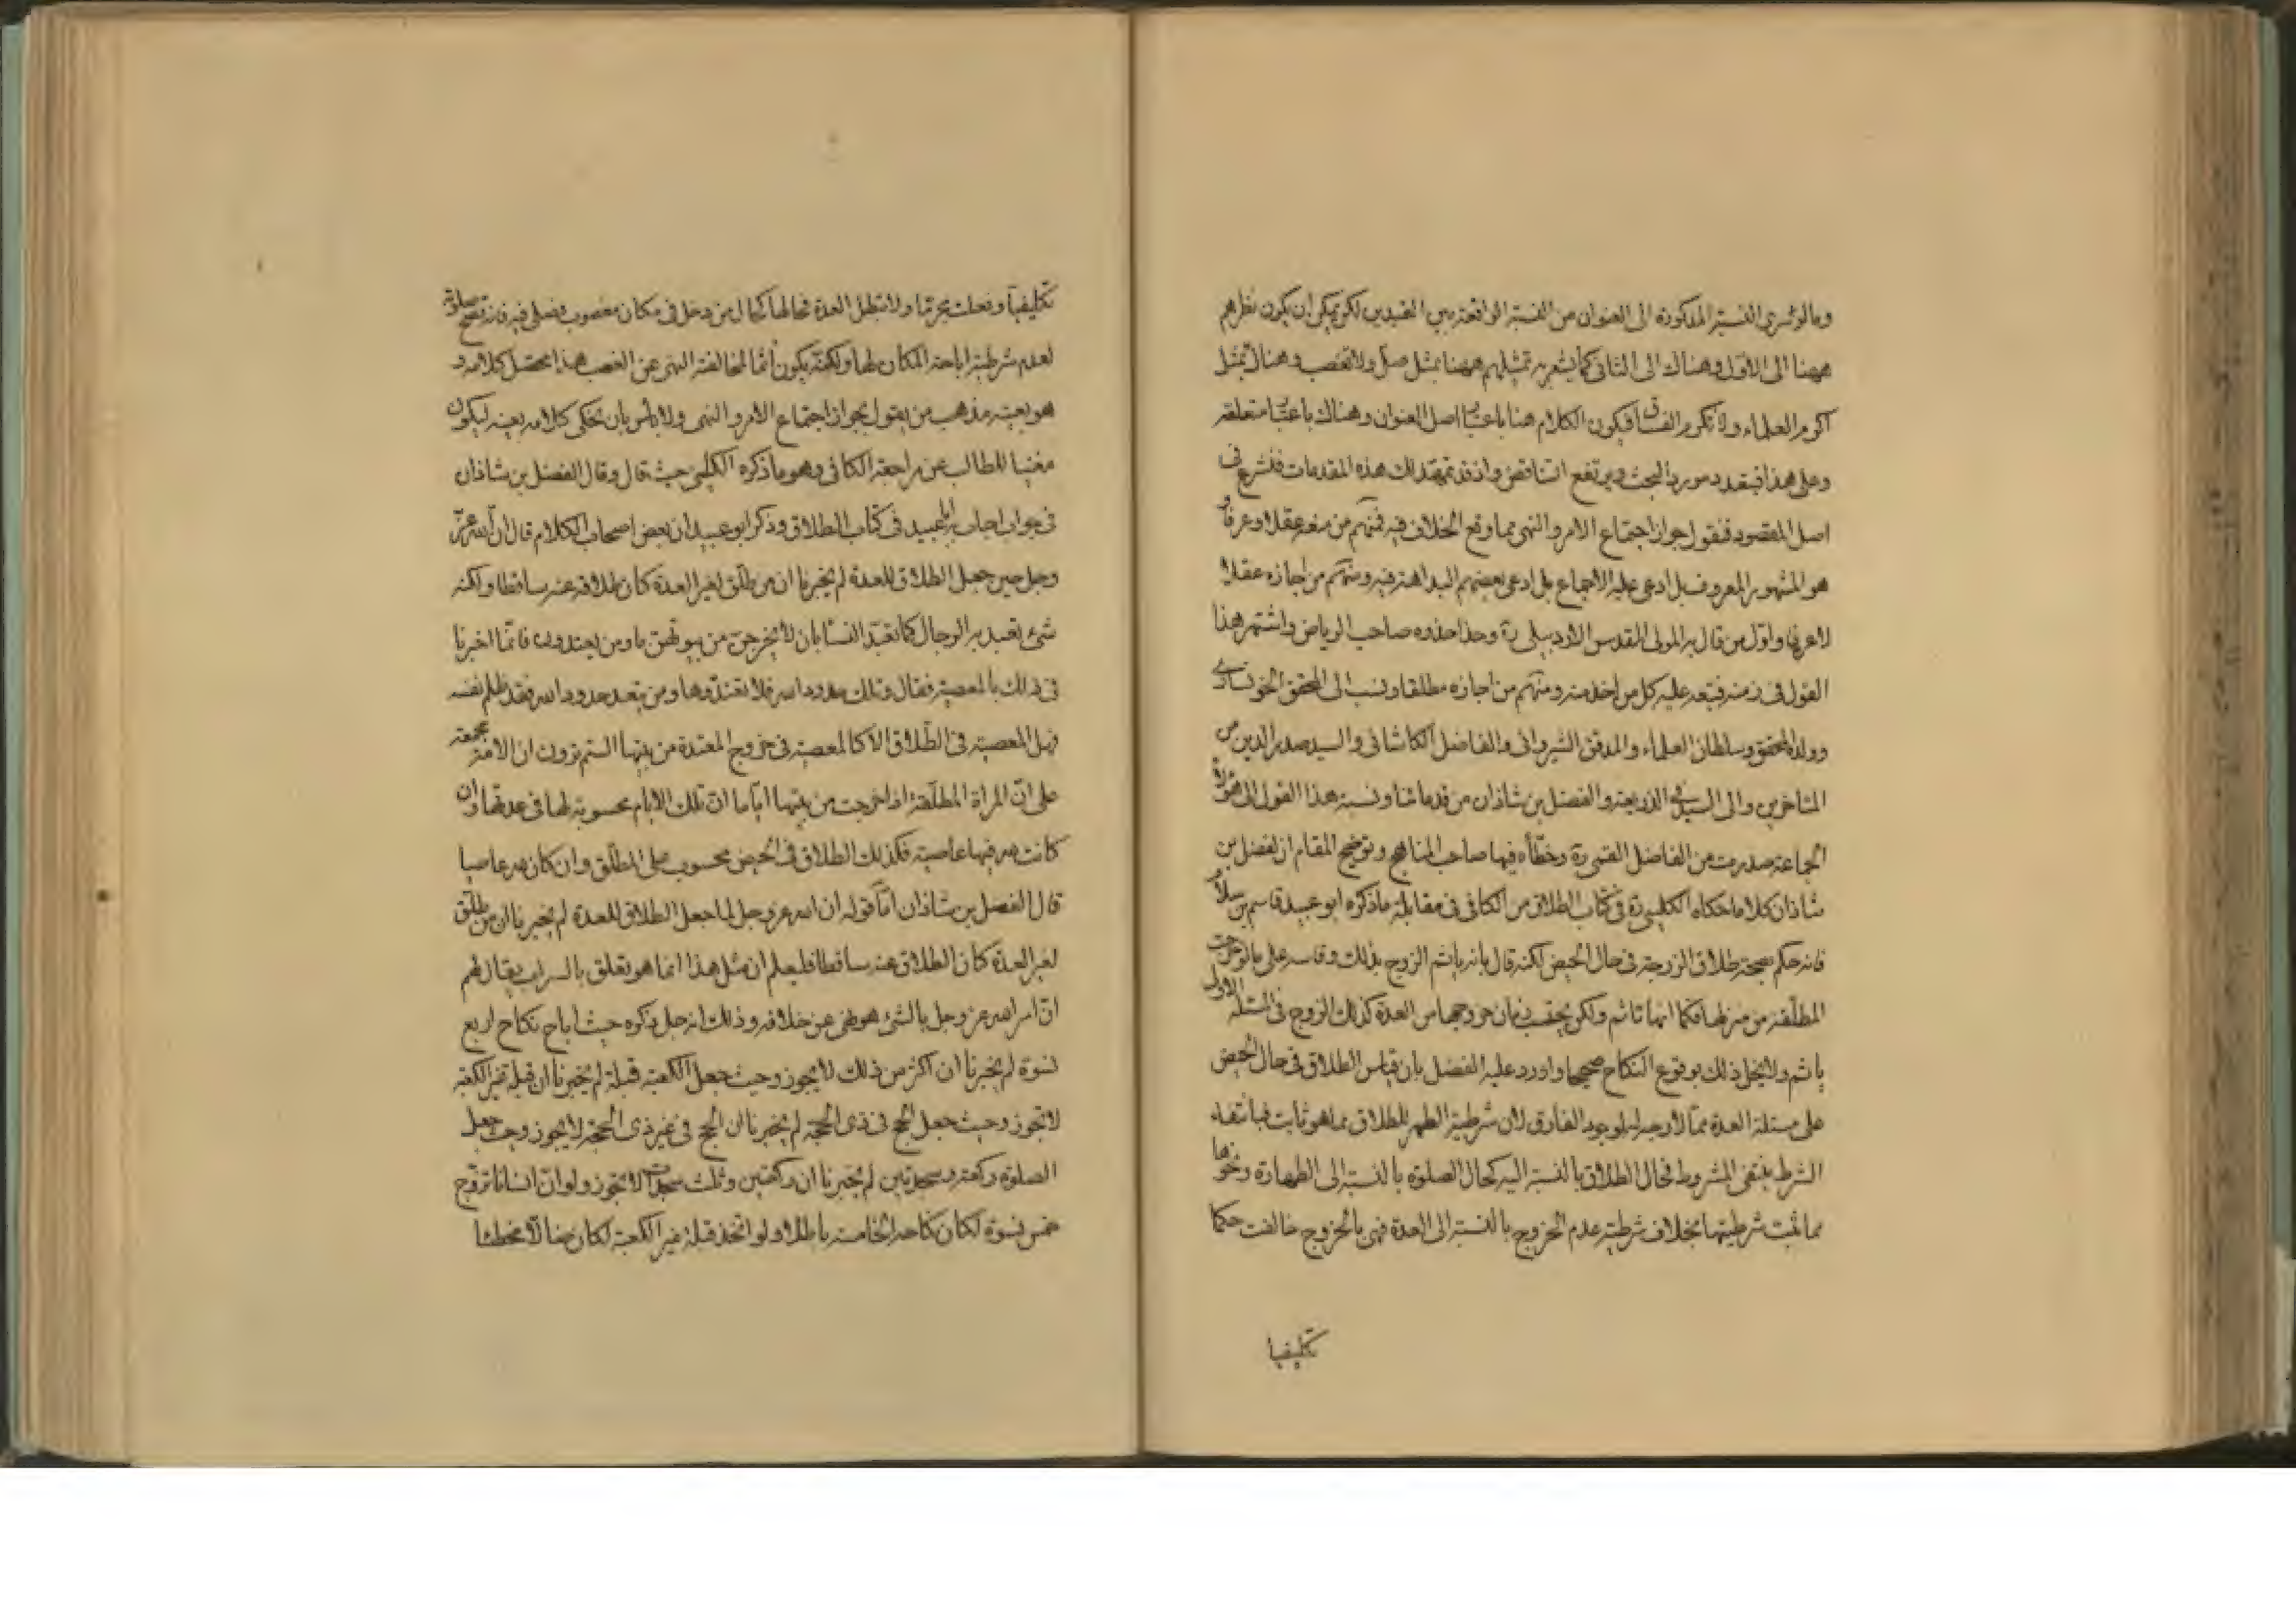 ومالو سرى النسبة المذكورة الى العنوان من النسبة الواقعة بين القيدين لكن يمكن ان يكون نظرهم
ههنا الى الاول وهناك الى الثانى كما يشعر به تمثيلهم ههنا بمثل صل ولا تغصب وهناك بمثل
اكرم العلماء ولا تكرم الفساق فيكون الكلام هنا باعتبار اصل العنوان وهناك باعتبار متعلقه
وعلى هذا فيتعدد مورد البحث ويرتفع التناقض واذ قد تمهد لك هذه المقدمات فلنشرع فى
اصل المقصود فنقول جواز اجتماع الامر والنهى مما وقع الخلاف فيه فمنهم من منعه عقلا وعرفا و
هو المشهور المعروف بل ادعى عليه الاجماع بل ادعى بعضهم البداهة فيه ومنهم من اجازه عقلا
لا عرفا واول من قال به المولى المقدس الاردبيلى ره وحذا حذوه صاحب الرياض واشتهر هذا
القول فى زمنه فتبعه عليه كل من اخذ منه ومنهم من اجازه مطلقا ونسب الى المحقق الخونسارى
وولده المحقق وسلطان العلماء والمدقق الشيروانى والفاضل الكاشانى والسيد صدر الدين من
المتاخرين والى السيد فى الذريعة والفضل بن شاذان من قدمائنا ونسبة هذا القول الى هؤلاء
الجماعة صدرت من الفاضل القمى ره وخطأه فيها صاحب المناهج وتوضيح المقام ان لفضل بن
شاذان كلاما حكاه الكلينى ره فى كتاب الطلاق من الكافى فى مقابلة ما ذكره ابو عبيد قاسم بن سلام
فانه حكم بصحة طلاق الزوجة فى حال الحيض لكنه قال بانه ياثم الزوج بذلك وقاسه على ما لو خرجت
المطلقة من منزلها فكما انها تاثم ولكن يحتسب زمان خروجها من العدة كذلك الزوج فى المسئلة الاولى
ياثم ولا يخل ذلك بوقوع النكاح صحيحا واورد عليه الفضل بان قياس الطلاق فى حال الحيض
على مسئلة العدة مما لا وجه له لوجود الفارق لان شرطية الطهر للطلاق مما هو ثابت فبانتفاء
الشرط ينتفى المشروط فحال الطلاق بالنسبة اليه كحال الصلوة بالنسبة الى الطهارة ونحوها
مما ثبت شرطيتها بخلاف شرطية عدم الخروج بالنسبة الى العدة فهى بالخروج خالفت حكما
تكليفيا
تكليفيا وفعلت محرما ولا تبطل العدة فحالها كحال من دخل فى مكان مغصوب فصلى فيه فانه تصح صلوته
لعدم شرطية اباحة المكان لها ولكنه يكون اثما لمخالفة النهى عن الغصب هذا محصل كلامه و
هو بعينه مذهب من يقول بجواز اجتماع الامر والنهى ولا باس بان نحكى كلامه بعينه ليكون
مغنيا للطالب عن مراجعة الكافى وهو ما ذكره الكلينى حيث قال وقال الفضل بن شاذان
فى جواب اجاب به ابا عبيد فى كتاب الطلاق وذكر ابو عبيد ان بعض اصحاب الكلام قال ان الله عز
وجل حين جعل الطلاق للعدة لم يخبرنا ان من طلق لغير العدة كان طلاقه عنه ساقطا ولكنه
شئ تعبد به الرجال كما تعبد النساء بان لا يخرجن من بيوتهن ما دمن يعتددن فانما اخبرنا
فى ذلك بالمعصية فقال وتلك حدود الله فلا تعتدوها ومن يتعد حدود الله فقد ظلم نفسه
فهل المعصية فى الطلاق الا كالمعصية فى خروج المعتدة من بيتها الستم ترون ان الامة مجمعة
على ان المراة المطلقة اذا خرجت من بيتها اياما ان تلك الايام محسوبة لها فى عدتها وان
كانت لله فيها عاصية فكذلك الطلاق فى الحيض محسوب على المطلق وان كان لله عاصيا
قال الفضل بن شاذان اما قوله ان الله عز وجل لما جعل الطلاق للعدة لم يخبرنا ان من طلق
لغير العدة كان الطلاق عنه ساقطا فليعلم ان مثل هذا انما هو تعلق بالسراب يقال لهم
ان امر الله عز وجل بالشئ هو نهى عن خلافه وذلك انه جل ذكره حيث اباح نكاح اربع
نسوة لم يخبرنا ان اكثر من ذلك لا يجوز وحيث جعل الكعبة قبلة لم يخبرنا ان قبلة غير الكعبة
لا تجوز وحيث جعل الحج فى ذى الحجة لم يخبرنا ان الحج فى غير ذى الحجة لا يجوز وحيث جعل
الصلوة ركعة وسجدتين لم يخبرنا ان ركعتين وثلث سجدات لا يجوز ولو ان انسانا تزوج
خمس نسوة لكان نكاحه الخامسة باطلا ولو اتخذ قبلة غير الكعبة لكان ضالا مخطئا